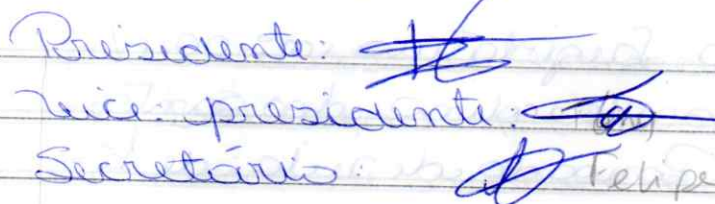 Presidente:
Vice: presidente:
Secretário: Felipe